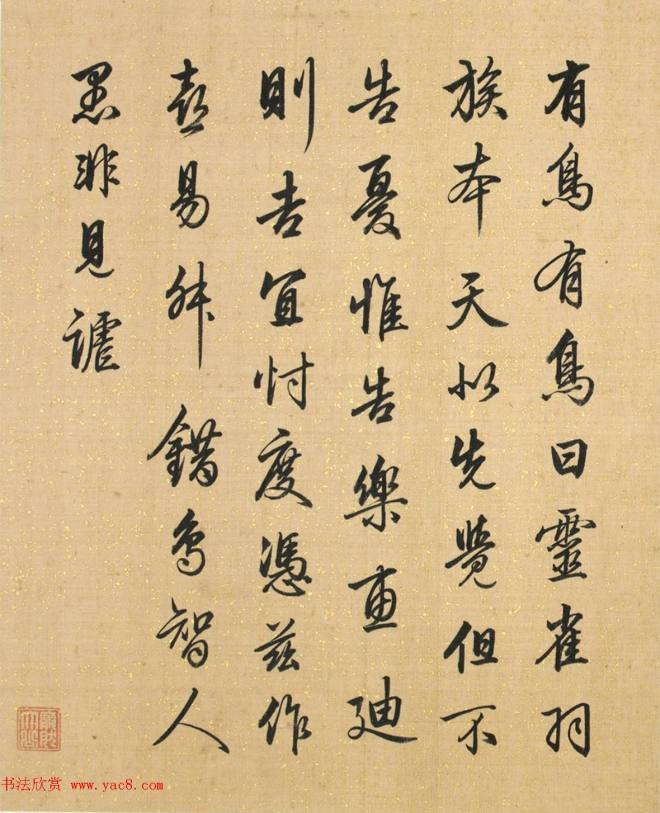 有鳥有鳥曰靈雀羽
族本天以先覺但不
告憂惟告樂惠廸
則吉宜忖度憑茲作
喜易舛錯鳥智人
愚非見謔
书法欣赏 www.yac8.com